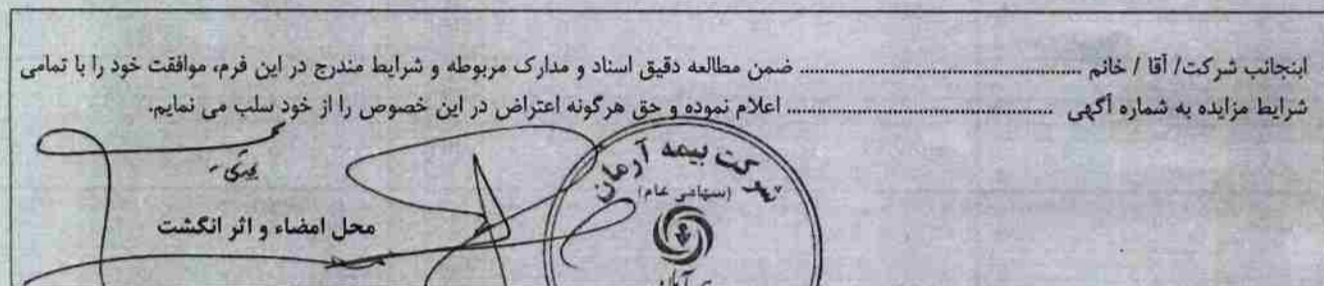 اینجانب شرکت/ آقا / خانم .................................................. ضمن مطالعه دقیق اسناد و مدارک مربوطه و شرایط مندرج در این فرم، موافقت خود را با تمامی
شرایط مزایده به شماره آگهی .................................................. اعلام نموده و حق هرگونه اعتراض در این خصوص را از خود سلب می نمایم.
شرکت بیمه آرمان
(سهامی عام)
محل امضاء و اثر انگشت